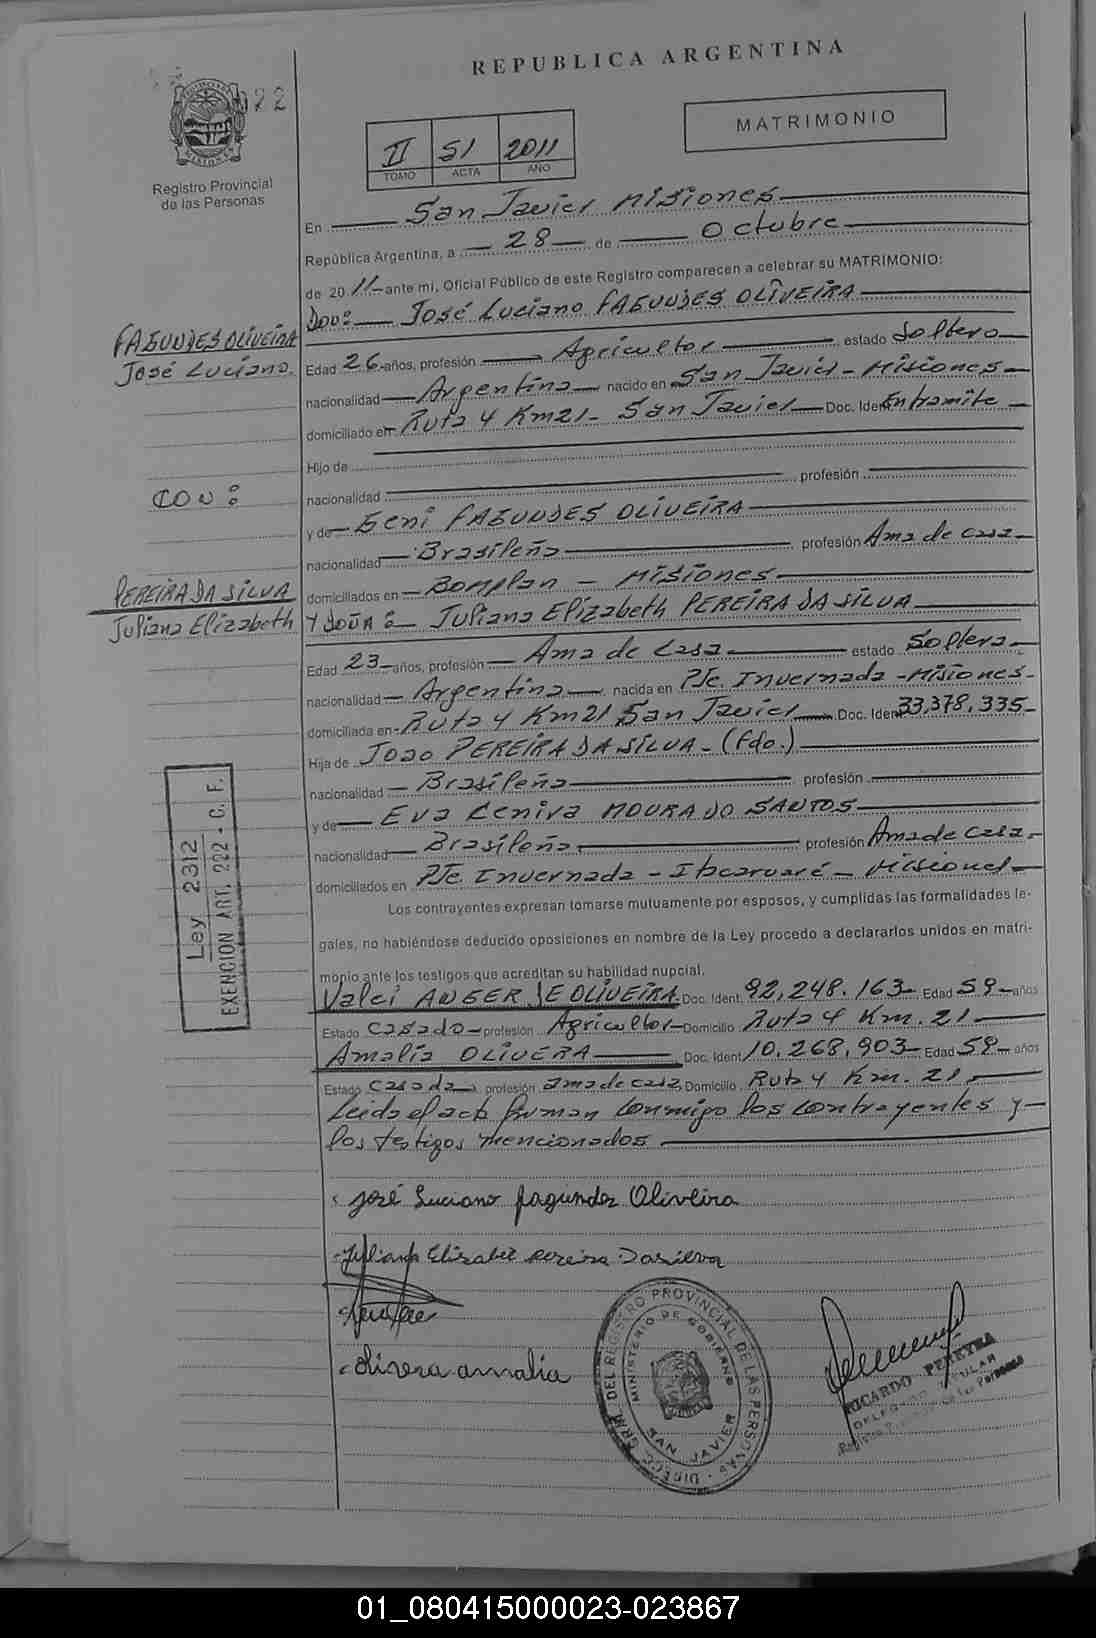 REPUBLICA ARGENTINA
22
Registro Provincial
de las Personas
MATRIMONIO
II 51 2011
TOMO ACTA AÑO
En San Javier Misiones
República Argentina, a 28 de Octubre
de 2011 ante mi, Oficial Público de este Registro comparecen a celebrar su MATRIMONIO:
Don: José Luciano FAGUNDES OLIVEIRA
FAGUNDES OLIVEIRA
José Luciano.
Edad 26 años, profesión Agricultor estado Soltero
nacionalidad Argentina nacido en San Javier - Misiones
domiciliado en Ruta 4 Km 21 - San Javier Doc. Ident Entramite
Hijo de
nacionalidad profesión
CON:
y de Geni FAGUNDES OLIVEIRA
nacionalidad Brasileña profesión Ama de casa
domiciliados en Bomplan - Misiones
PEREIRA DA SILVA
Juliana Elizabeth
Y DOÑA: Juliana Elizabeth PEREIRA DA SILVA
Edad 23 años, profesión Ama de Casa estado Soltera
nacionalidad Argentina nacida en Pje. Invernada - Misiones
domiciliada en Ruta 4 Km 21 San Javier Doc. Ident 33,378,335
Hija de Joao PEREIRA DA SILVA - (fdo.)
nacionalidad Brasileña profesión
y de Eva Leniva MOURA DO SANTOS
nacionalidad Brasileña profesión Ama de Casa
domiciliados en Pje. Invernada - Itacaruaré - Misiones
Ley 2312
EXENCION ART. 222 - C. F.
Los contrayentes expresan tomarse mutuamente por esposos, y cumplidas las formalidades le-
gales, no habiéndose deducido oposiciones en nombre de la Ley procedo a declararlos unidos en matri-
monio ante los testigos que acreditan su habilidad nupcial.
Valci ANGER DE OLIVEIRA Doc. Ident. 92,248.163 Edad 59 años
Estado Casado profesión Agricultor Domicilio Ruta 4 Km. 21
Amalia OLIVERA Doc. Ident 10.268,903 Edad 59 años
Estado Casada profesión ama de casa Domicilio Ruta 4 Km. 21
Leida el acta firman conmigo los contrayentes y
los testigos mencionados
José Luciano fagundez Oliveira
Juliana Elisabet pereira Dasilva
olivera amalia
DIRECC. GRAL. DEL REGISTRO PROVINCIAL DE LAS PERSONAS
MINISTERIO DE GOBIERNO
SAN JAVIER
RICARDO PEREYRA
DELEGADO TITULAR
Registro Provincial de las Personas
01_080415000023-023867